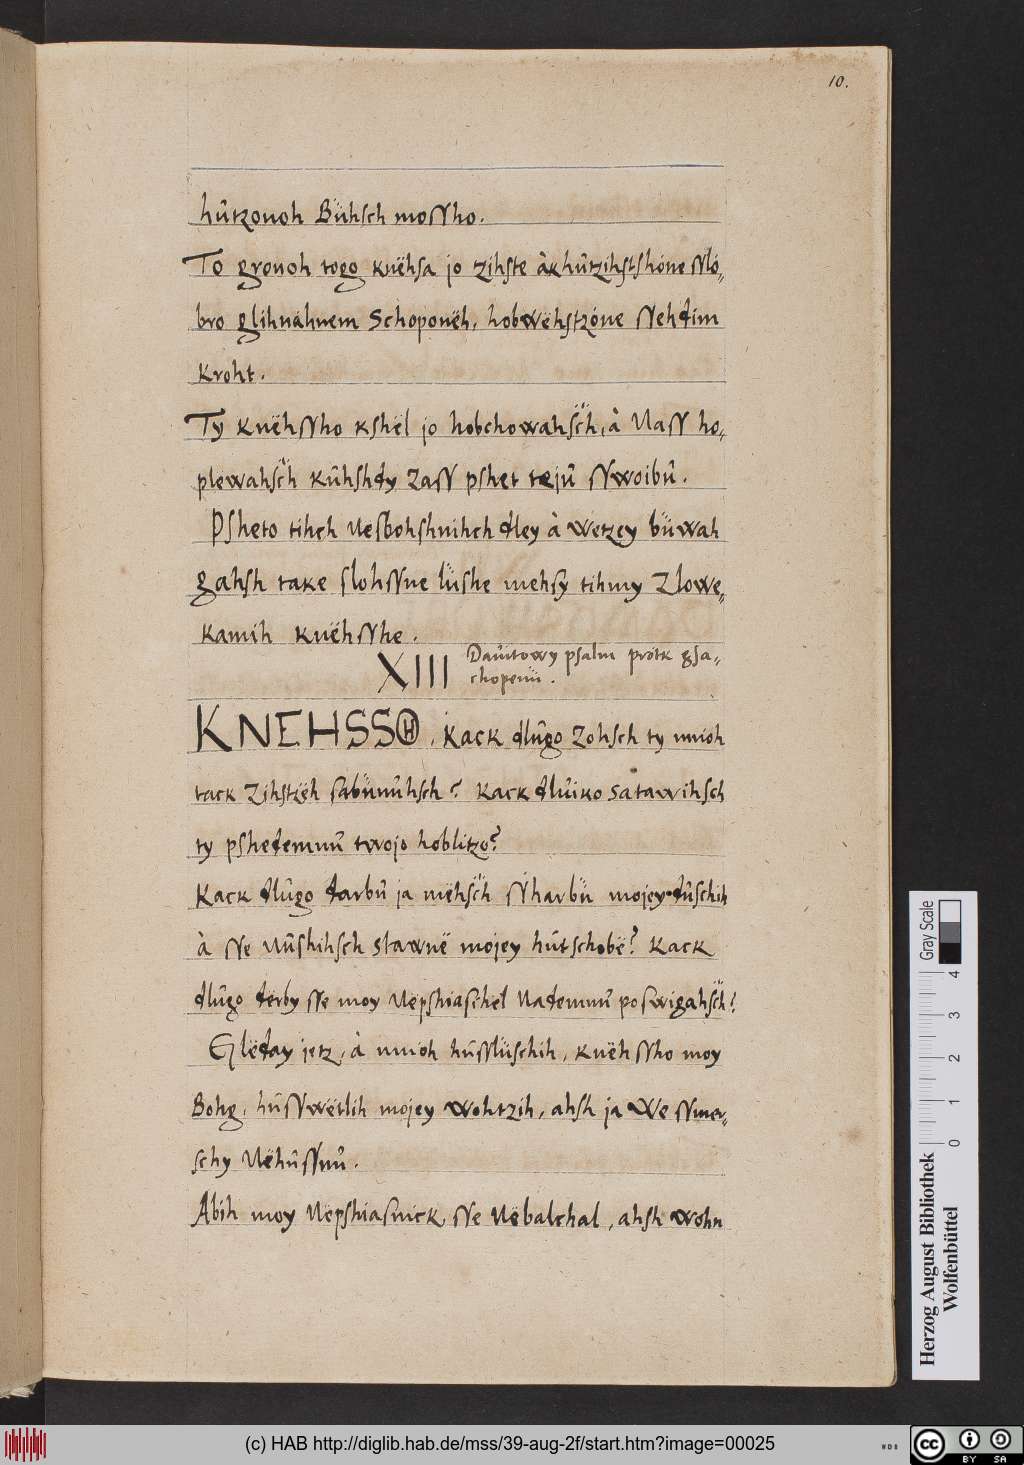 10.
hûtzonoh Bühsch mossho.
To gronoh togo knëhsa jo zihste àkhûtzihstshóne sló⸗
bro glihnáhnem Schoponëh, hobwëhstzóne ssehdim
kroht.
Ty knëhssho kshël jo hobchowahsch̎, à Nass ho⸗
plewahsch̎ kûhshdy zass pshet tejû sswoibû.
Psheto tihch Nesbohshnihch dley à wetzey büwah
gahsh take slohssne lüshe mehsy tihmy Zlowe⸗
kamih knëhsshe.
XIII Dawitowy psalm prötk gsa⸗
chopenü.
KNEHSSO, Kack dlûgo Zohsch ty mnioh
tack Zihstzëh sabünûhsch? Kack dlûiko satawihsch
ty pshedemnû twojo hoblitzo?
Kack dlûgo darbû ja mëhsch̎ Sharbü mojey dûschih
à sse Nûshihsch stawnë mojey hûtschobë? Kack
dlûgo derby sse moy Nepshiaschel Nademnû poswigahsch̎?
Glëday jetz, à mnioh hûsslüschih, knëhssho moy
Bohg, hûsswëtlih mojey wohtzih, ahsh ja We ssmer⸗
schy Nëhûssnû.
Abih moy Nepshiasnick sse Nëbalchal, ahsh wohn
Herzog August Bibliothek
Wolfenbüttel
Gray Scale
0 1 2 3 4
(c) HAB http://diglib.hab.de/mss/39-aug-2f/start.htm?image=00025
WDB
cc BY SA